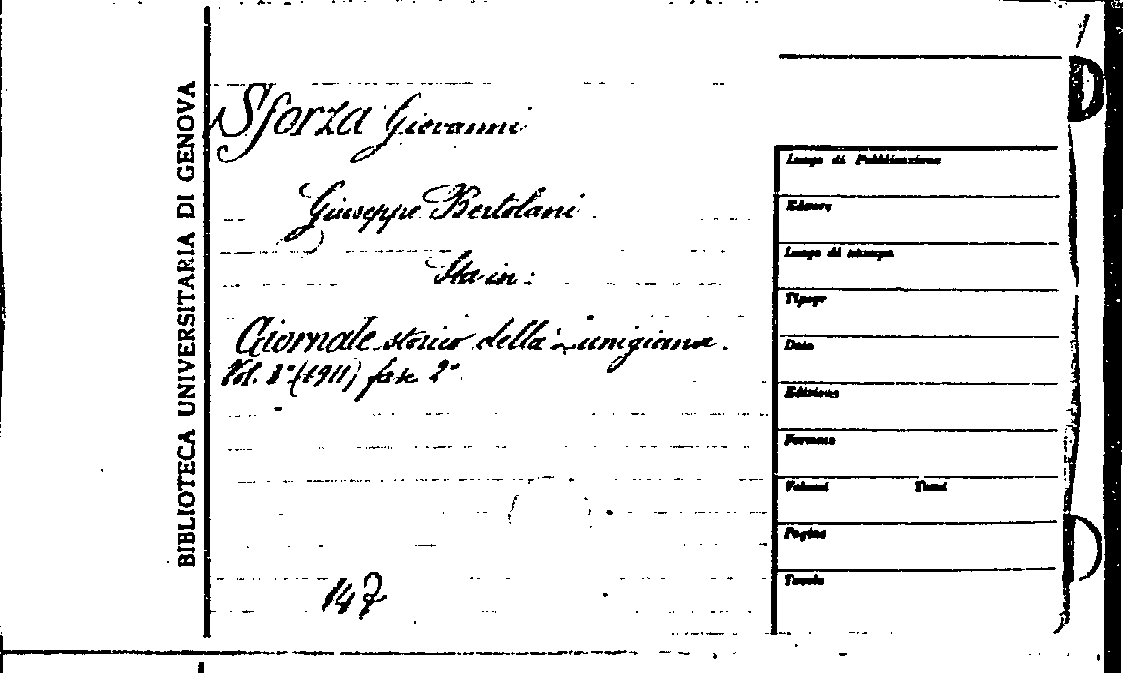 BIBLIOTECA UNIVERSITARIA DI GENOVA
Sforza Giovanni
Giuseppe Bertolani
Sta in:
Giornale storico della Lunigiana.
Vol. 3° (1911) fasc. 2°
147
Luogo di Pubblicazione
Editore
Luogo di stampa
Tipogr
Data
Edizione
Formato
Volumi Tomi
Pagine
Tavole